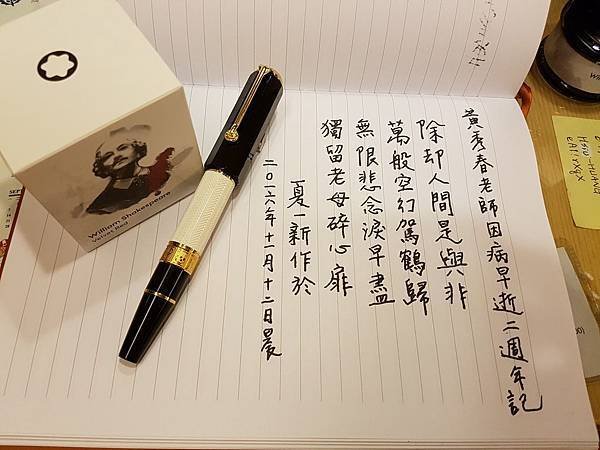 黃秀春老師因病早逝二週年記
除却人間是與非
萬般空幻駕鶴歸
無限悲念淚早盡
獨留老母碎心扉
夏一新作於
二〇一六年十一月十二日晨
William Shakespeare
Velvet Red